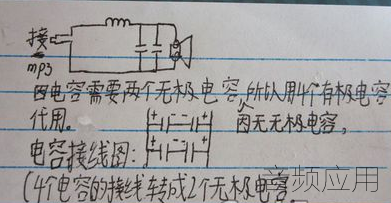 接
mp3
因电容需要两个无极电容,所以用4个有极电容
代用。 因无无极电容,
电容接线图:
+ - - +
+ - - +
(4个电容的接线转成2个无极电容。
音频应用